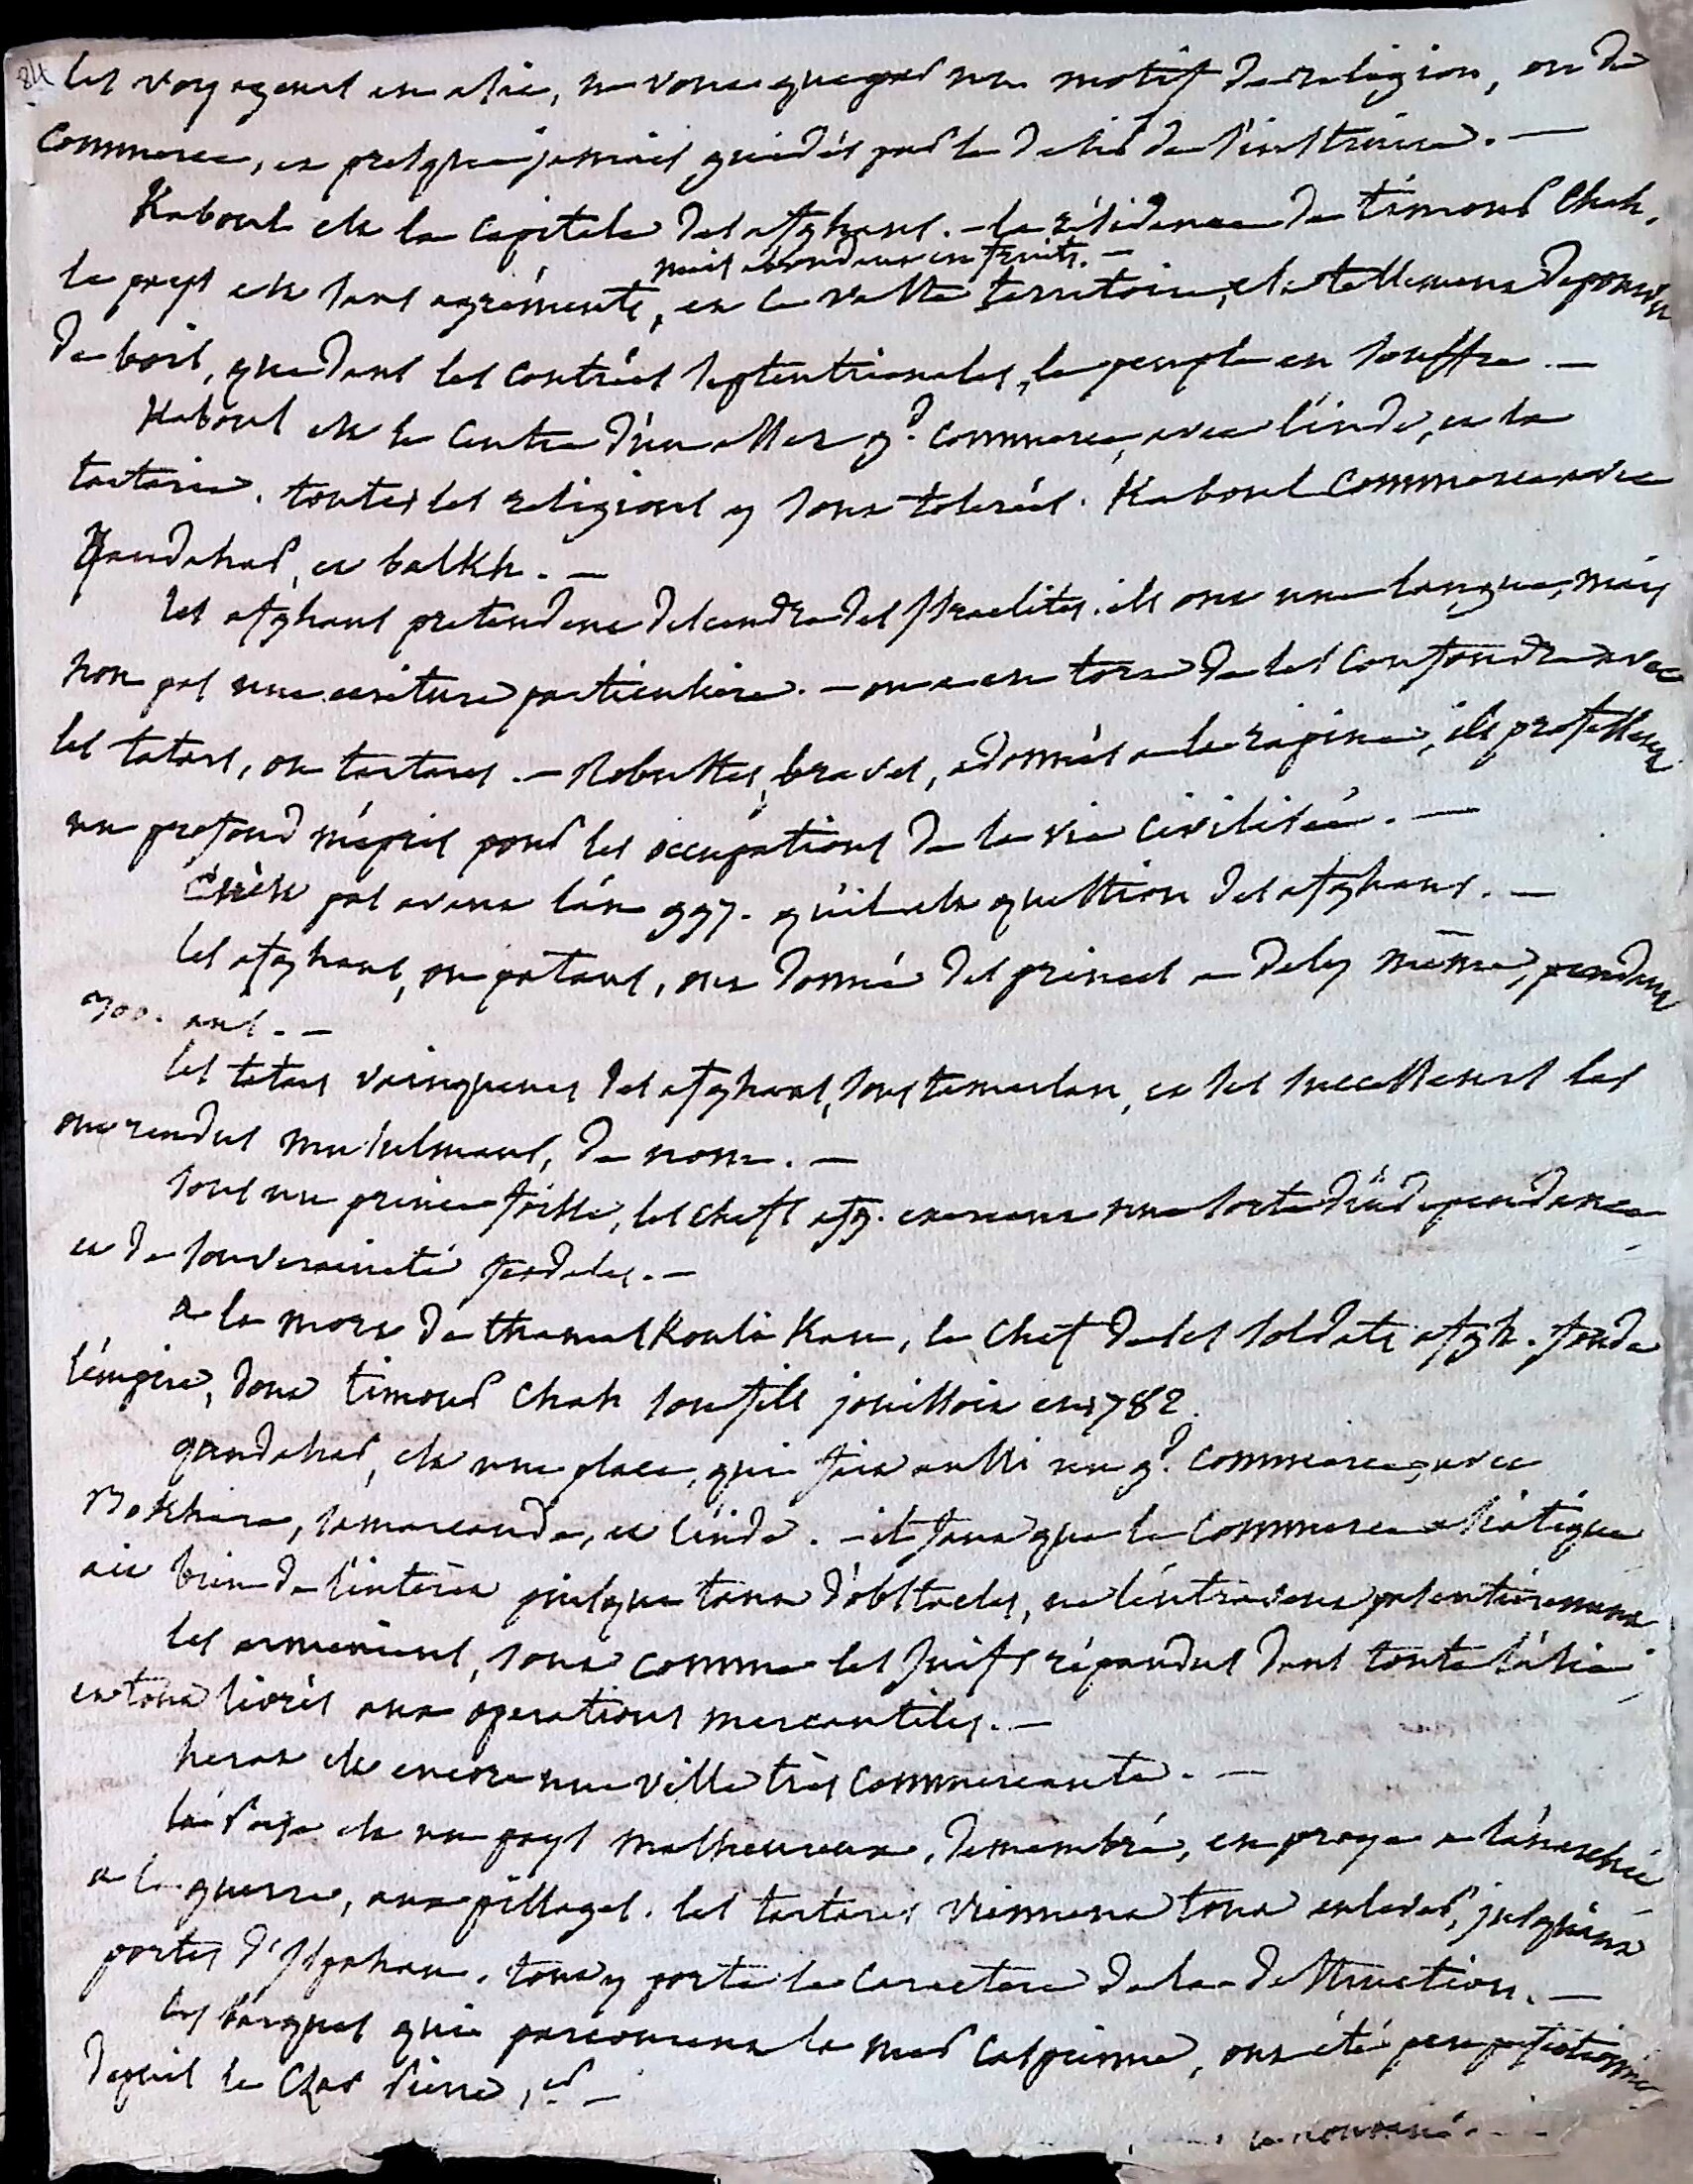 84
les voyageurs en asie, ne vont que par un motif de religion, ou de
commerce, et presque jamais guidés par le desir de s'instruire. —
Kaboul est la capitale des afghans. – la résidence de timour Chah.
mais abondant en fruits. —
le pays est sans agréments, et ce vaste territoire, est tellement dépourvu
de bois, que dans les contrées septentrionales, le peuple en souffre. —
Kaboul est le centre d'un assez gd. commerce, avec l'inde, et la
tartarie. toutes les religions y sont tolerées. Kaboul commerce avec
Kandahar, et balkh. —
les afghans pretendent descendre des Israelites. ils ont une langue, mais
non pas une ecriture particuliere. — on a eu tort de les confondre avec
les tatars, ou tartares. — Robustes, braves, adonnés a la rapine, ils professent
un profond mépris pour les occupations de la vie civilisée. —
Ce n'est pas avant l'an 997. qu'il est question des afghans. —
les afghans, ou patans, ont donné des princes a dely même, pendant
300. ans. —
les tatars vainqueurs des afghans, sous tamerlan, et ses successeurs les
ont rendus musulmans, de nom. —
sous un prince foible, les chefs afg. exercent une sorte d'independance
et de souveraineté feodales. —
a la mort de thamas Kouli Kan, le chef de ses soldats afgh. fonda
l'empire, dont timour Chah son fils jouissoit en 1782.
gandahar, est une place, qui fait aussi un gd. commerce, avec
Bokhara, samarcande, et l'inde. – il faut que le commerce asiatique
ait bien de l'interêt puisque tant d'obstacles, ne l'entravent pas entièrement
les armeniens, sont comme les Juifs répandus dans toute l'asie
et tous livrés aux operations mercantiles. —
herat est encore une ville très commercante. —
la Perse est un pays malheureux, demembré, en proye a l'anarchie
a la guerre, aux pillages. les tartares viennent tout enlever, jusqu'aux
portes d'Ispahan. tout y porte le caractere de la destruction. —
les barques qui parcourent la mer Caspienne, ont été peu perfectionnées
depuis le Czar Pierre, er —